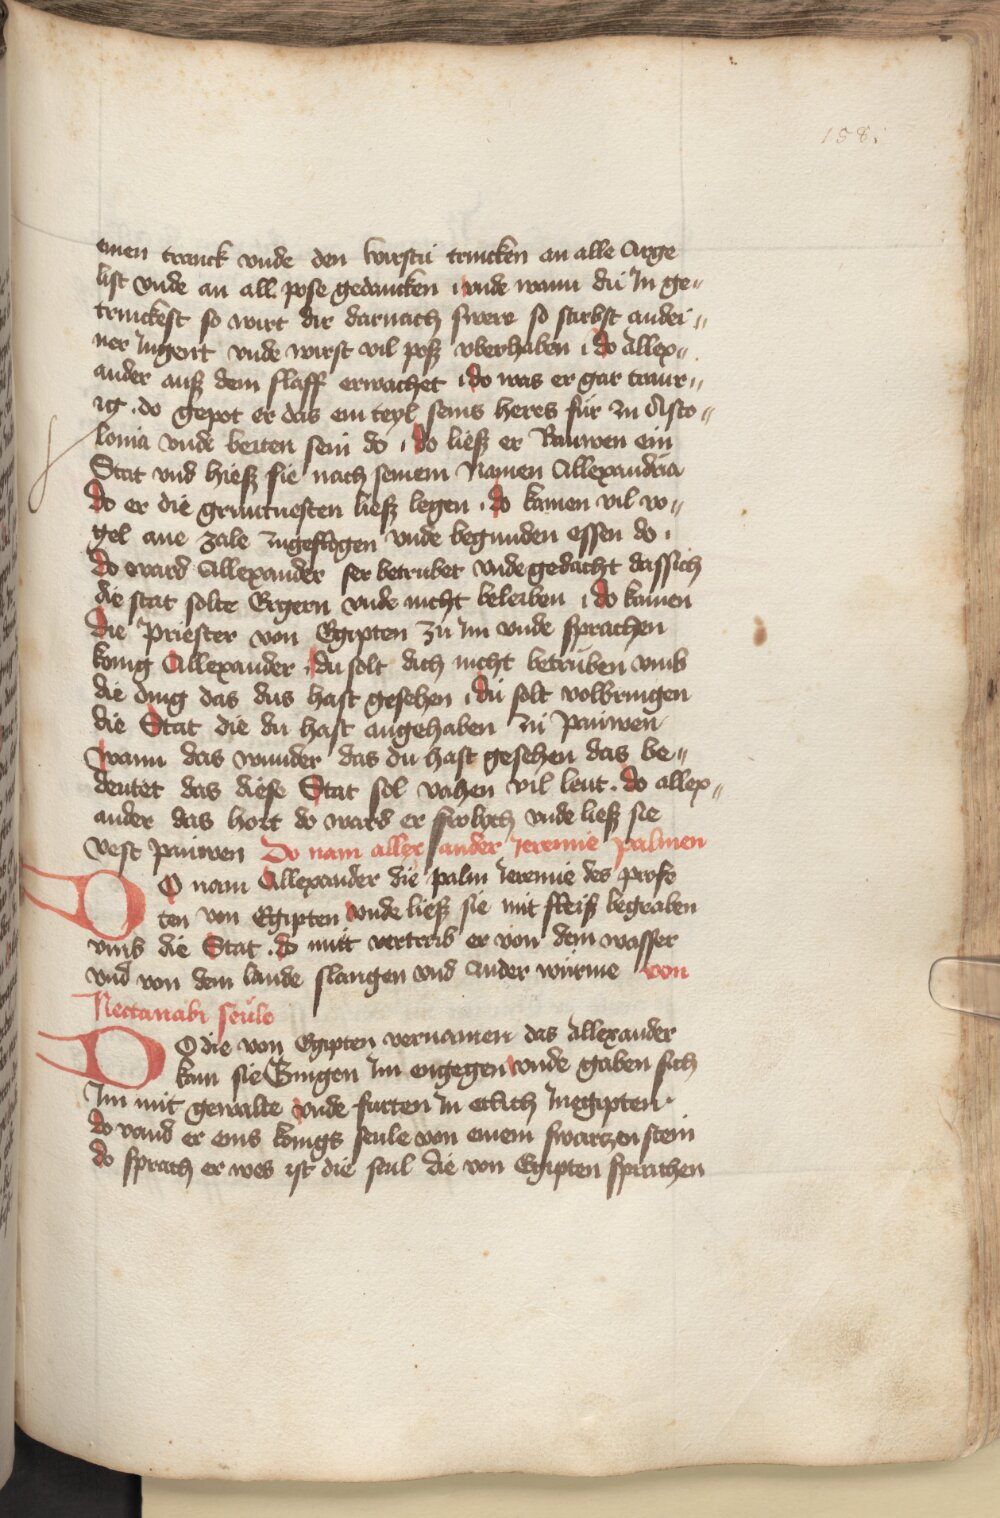 158.
einen tranck vnde den wirstu trincken an alle Arge
list vnde an all pose gedancken vnde wann du In ge„
trinckest so wirt dir darnach swere so starbst an dei„
ner Jugent vnde wirst vil posz vberhaben do Allex„
ander ausz dem slaff erwachet do was er gar traur„
ig . do gepot er das ein teyl seins heres fur zu Asco„
lonia vnde beiten sein do do liesz er Bauwen ein
Stat vnd hiesz sie nach seinem Namen Allexandria
do er die gruntuesten liesz legen do kamen vil vo„
gel ane zale zugeflogen vnde begunden essen do
do ward Allexander ser betrubet vnde gedacht das sich
die stat solte Ergern vnde nicht beleiben do kamen
die Priester von Egipten zu im vnde sprachen
konig Allexander du solt dich nicht betruben vmb
die ding das dus hast gesehen du solt volbringen
die Stat die du hast angehaben zu pauwen
wann das wunder das du hast gesehen das be„
deutet das diese Stat sol vahen vil leut . do allex„
ander das hort do ward er frolych vnde liesz sie
vest pauwen Do nam allexander Jeremie palmen
DO nam Allexander die palm Jeremie des profe
ten von Egipten vnde liesz sie mit fleisz begraben
vmb die Stat . do mitt vertreib er von dem wasser
vnd von dem lande slangen vnd ander wurme von
Nectanabi seule
DO die von Egipten vernamen das Allexander
kam sie Gingen im engegen vnde gaben sich
Im mit gewalte vnde furten In etlich Inegipten
do vand er eins konigs seule von einem swarczen stein
do sprach er wes ist die seul die von Egipten sprachen